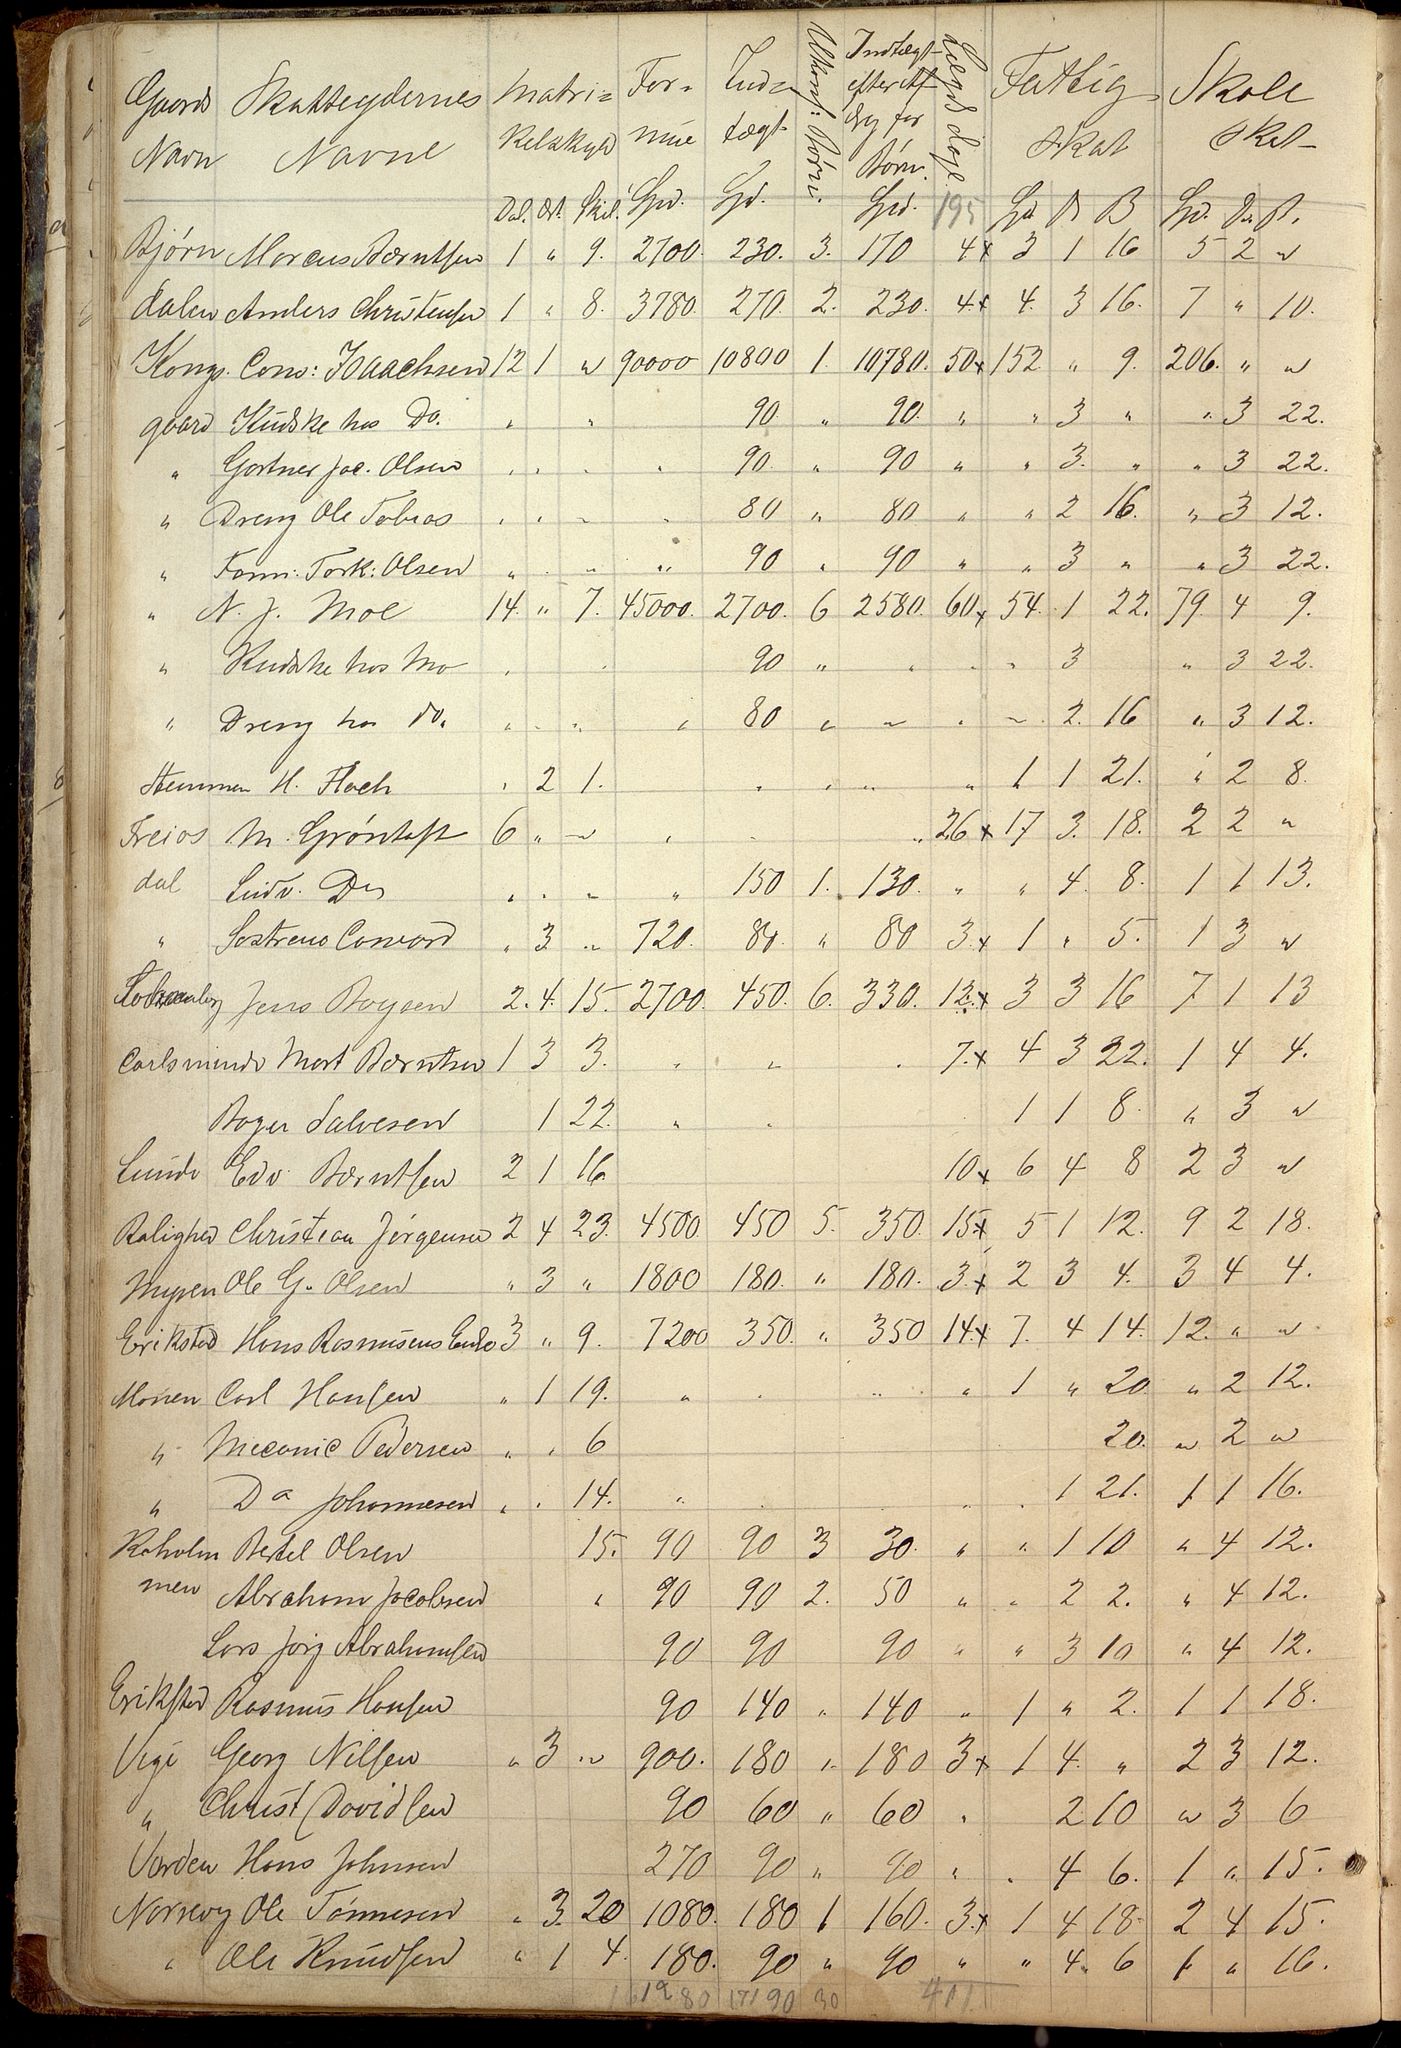 Gaards Skatteydernes Matri= For= Ind= Ukonf: Indtægt Lægd
Navn Navne kelskyld mue tægt Børn. efter Af drag for Børn. Fattig Skat Skole Skat
Dal. Ort. Skil. Spd. Spd. Spd. 195 Spd. Spd.
Bjørn Marcus Bærntsen 1 " 9. 2700. 230. 3. 170 4x 3 1 16 5 2 "
dalen Anders Christensen 1 " 8. 3780. 270. 2. 230. 4x 4. 3 16. 7 " 10.
Kongs Cons: Isaachsen 12 1 " 90000 10800 1. 10780. 50x 152 " 9. 206. " "
gaard Kudske hos Do. " " 90 " 90. " " 3 " " 3 22.
" Gartner Jac. Olsen " " " " 90. " 90 " " 3. " " 3 22.
" Dreng Ole Tobias " " " " 80 " 80 " " 2 16. " 3 12.
" Form: Tork: Olsen " " " " 90 " 90 " " 3 " " 3 22.
" N. J. Moe 14. " 7. 45000. 2700. 6 2580. 60x 54. 1 22. 79. 4 9.
" Kudske hos Mo " " 90 " " " " 3 " 3 22.
" Dreng hos do. " " " " 80 " " " " 2. 16 " 3 12.
Stemmen H. Floch " 2 1. " " " " 1 1 21. " 2 8.
Freios M. Grøntoft 6 " " " " " 26x 17 3. 18. 2 2 "
dal Ludv. Do " " " " 150 1. 130. " " 4. 8. 1 1 13.
" Søstrene Conrard " 3 " 720. 80. " 80 3.x 1 " 5. 1 3 "
Jens Boysen 2. 4. 15. 2700. 450. 6. 330. 12.x 3 3 16 7 1 13
Carlsminde Mort Bærntsen 1 3 3. " " " 7.x 4 3 22. 1 4 4.
Roger Salvesen 1 22. " " 1 1 8. " 3 "
Lunde Edv. Bærntsen 2 1 16. 10x 6 4 8 2 3 "
Rolighed Christian Jørgensen 2 4 23. 4500. 450 5. 350. 15x 5 1 12. 9 2 18.
Myren Ole G. Olsen " 3 " 1800 180. " 180. 3.x 2 3 4. 3 4 4.
Erikstad Hans Rasmusens Enke 3 " 9. 7200 350. " 350 14.x 7. 4 14. 12. " "
Monen Carl Hansen " 1 19. " " " " 1 " 20 " 2 12.
" Mecanic Pedersen " " 6 20. " 2 "
" Do Johannesen " " 14. " " " " 1 21. 1 1 16.
Roholm Bertel Olsen 15. 90 90 3 30. " " 1 10 " 4 12.
men Abraham Jacobsen " 90 90 2. 50 " " 2 2. " 4 12.
Lars Jørg Abrahamsen 90 90 90 " " 3 10 " 4 12.
Erikstad Rasmus Hansen 90 140 " 140 " 1 " 2. 1 1 18.
Vige Georg Nilsen " 3 " 900. 180 " 180 3x 1 4. " 2 3 12.
" Christ Davidsen 90 60 " 60 " 2 10 " 3 6
Varden Hans Johnsen 270 90 " 90 " " 4 6. 1 " 15.
Narrevig Ole Tønnesen " 3. 20 1080. 180 1 160. 3.x 1 4 18. 2 4 15.
" Ole Knudsen " 1 4. 180. 90 " 90 " " 4. 6 1 " 16.